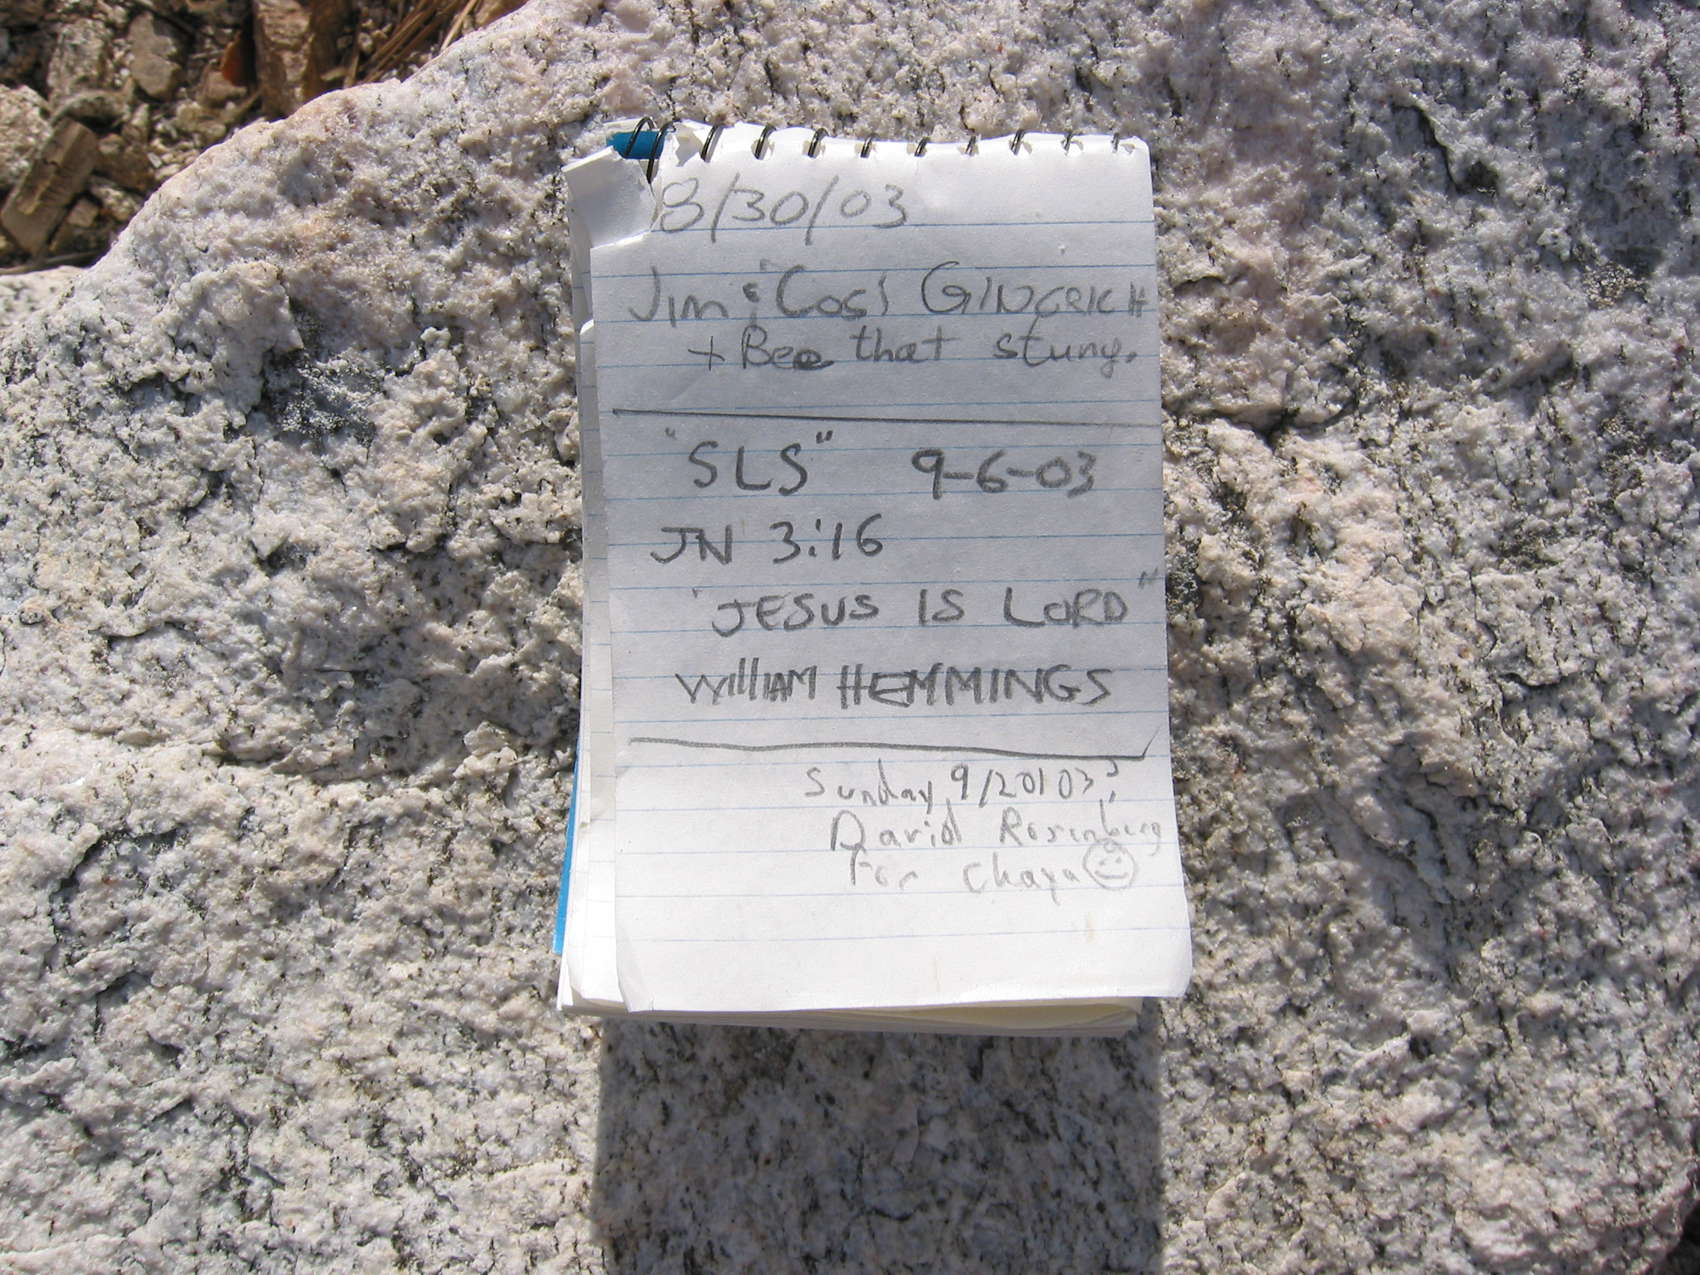 8/30/03
Jim & "Cos" GINGRICH
+ Bee that stung.
"SLS" 9-6-03
JN 3:16
"JESUS IS LORD"
William HEMMINGS
Sunday 9/20/03?
David Rosenberg
For Chaya